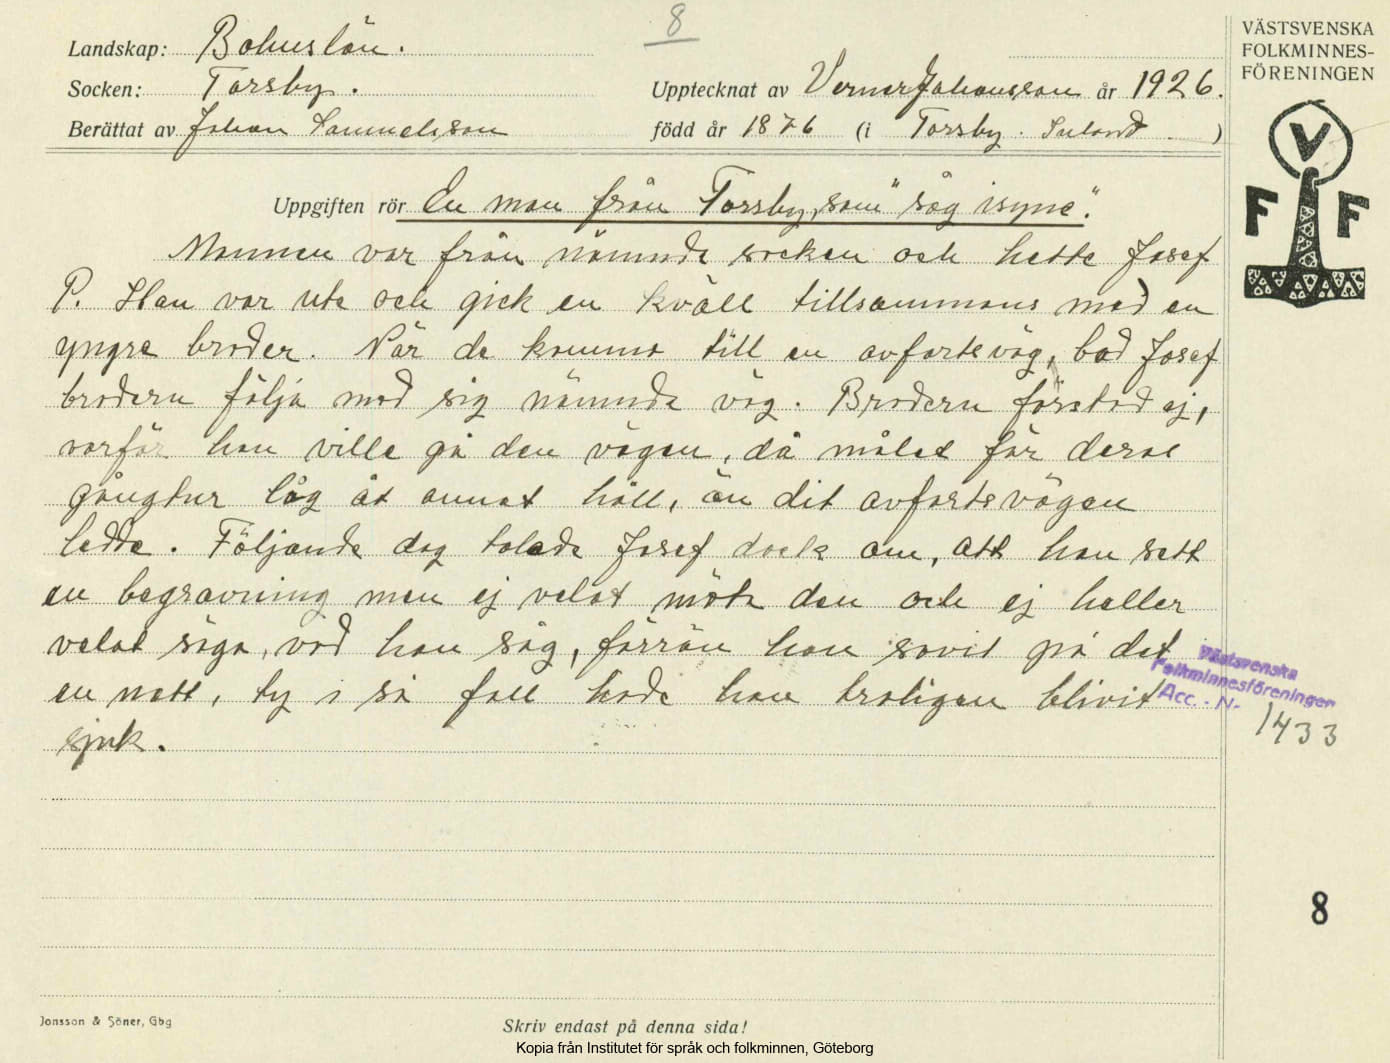 8
Landskap: Bohuslän.
Socken: Torsby.
Upptecknat av Verner Johansson år 1926.
Berättat av Johan Samuelsson
född år 1876 (i Torsby. Inland.)
VÄSTSVENSKA
FOLKMINNES-
FÖRENINGEN
V
F F
Uppgiften rör En man från Torsby, som "såg isyne".
Mannen var från nämnda socken och hette Josef
P. Han var ute och gick en kväll tillsammans med en
yngre broder. När de kommo till en avfartsväg, bad Josef
brodern följa med sig nämnda väg. Brodern förstod ej,
varför han ville gå den vägen, då målet för deras
gångtur låg åt annat håll, än dit avfartsvägen
ledde. Följande dag talade Josef dock om, att han sett
en begravning men ej velat möta den och ej heller
velat säga, vad han såg, förrän han sovit på det
en natt, ty i så fall hade han troligen blivit
sjuk.
Västsvenska
Folkminnesföreningen
Acc. - N-
1433
8
Jonsson & Söner, Gbg
Skriv endast på denna sida!
Kopia från Institutet för språk och folkminnen, Göteborg